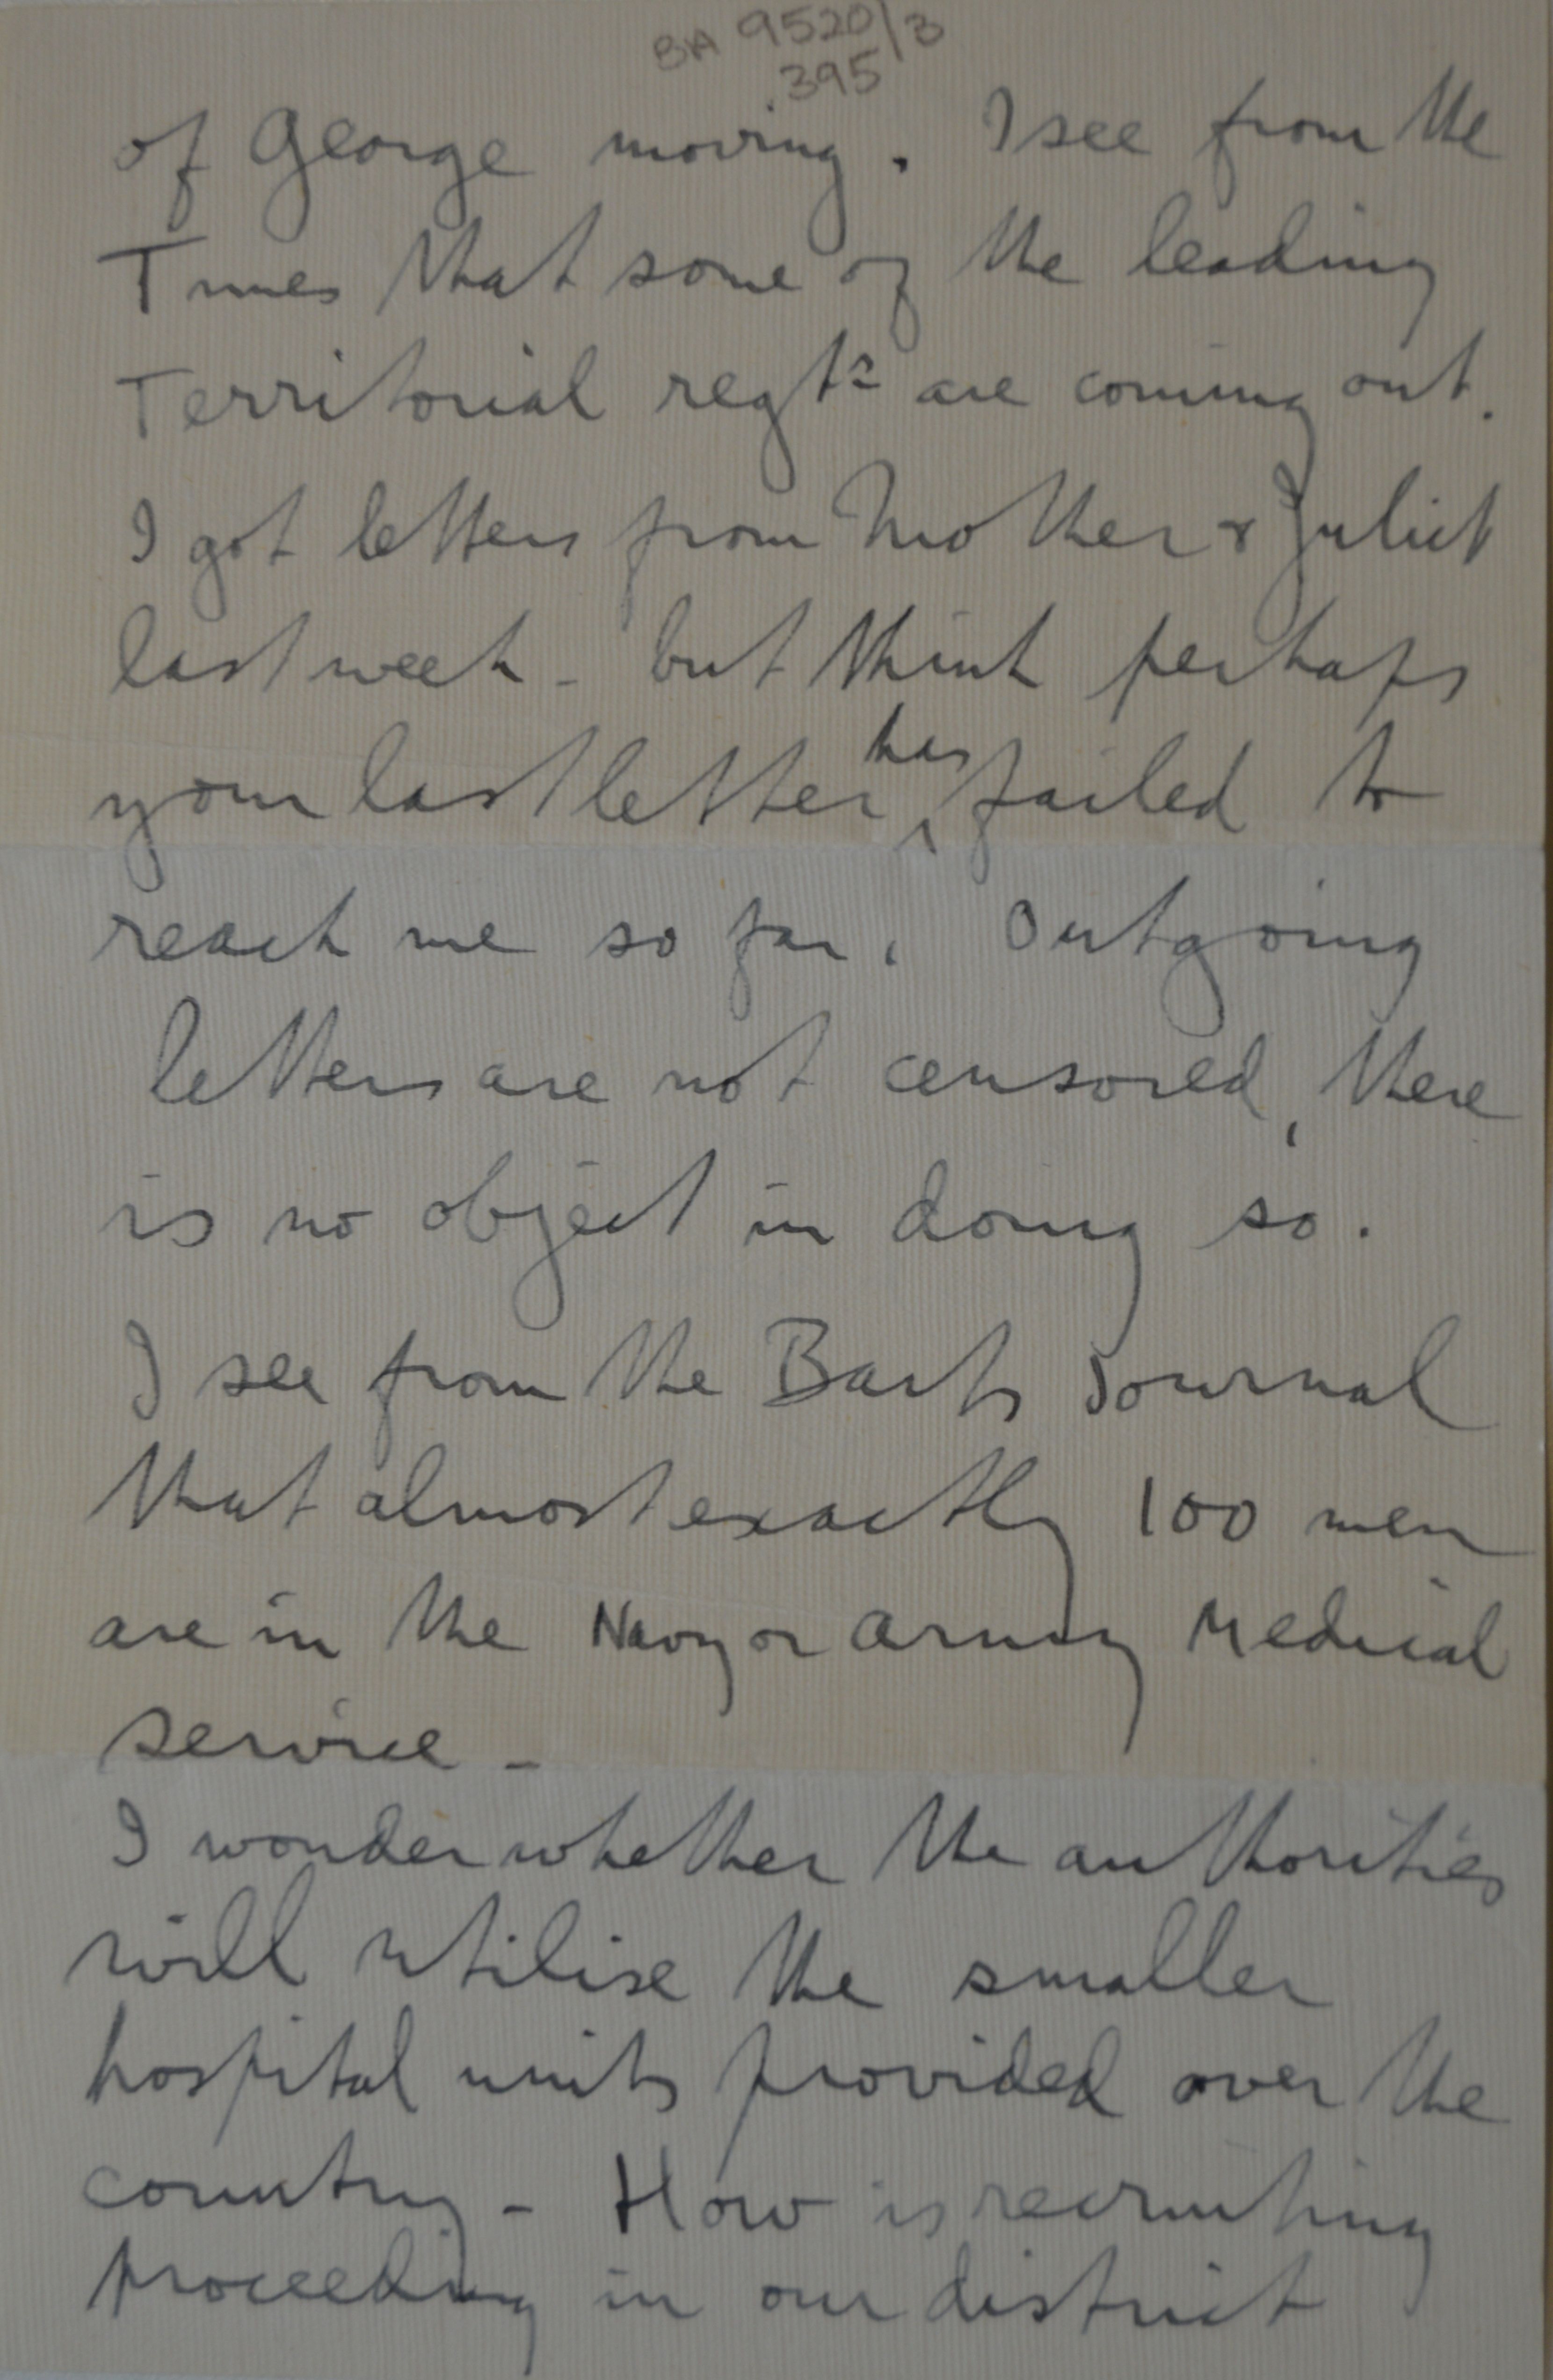 BA 9520/3
.395
of George moving. I see from the
Times that some of the leading
Territorial regts are coming out.
I got letters from Mother & Juliet
last week - but think perhaps
has
your last letter ^ failed to
reach me so far. Outgoing
letters are not censored, there
is no object in doing so.
I see from the Barts Journal
that almost exactly 100 men
are in the Navy or Army Medical
service -
I wonder whether the authorities
will utilise the smaller
hospital units provided over the
country - How is recruiting
proceeding in our district